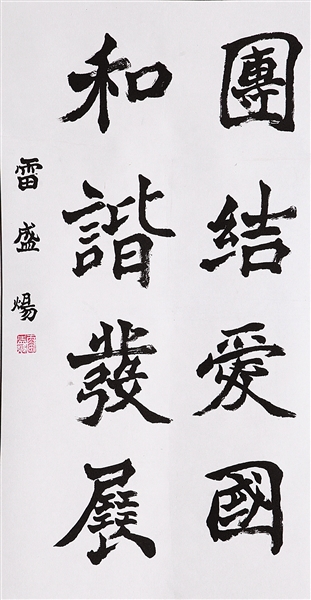 團結愛國
和諧發展
雷盛煬